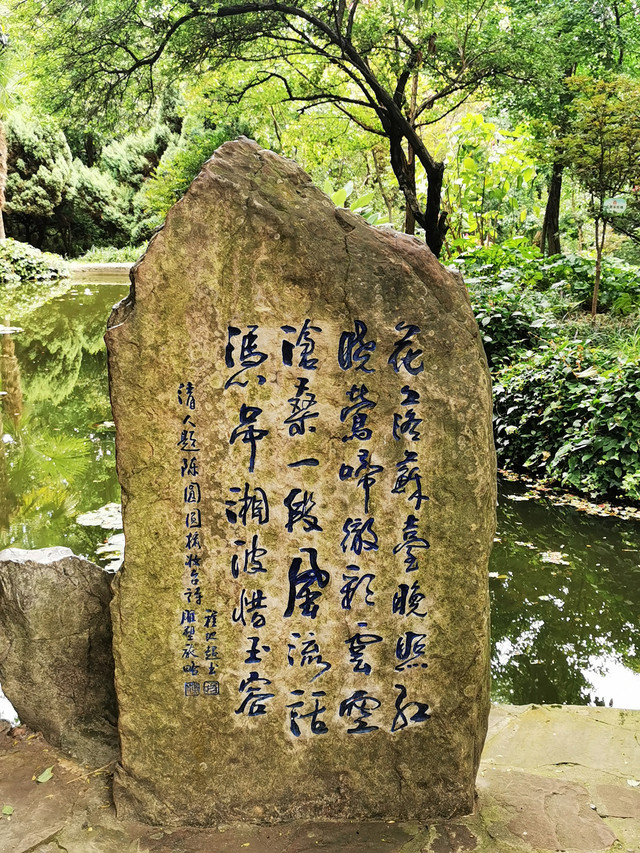 花落蘇臺晚照紅
曉鶯啼徹彩雲空
滄桑一段風流話
憑吊湘波惜玉容
清人題陳圓圓梳妝台詩